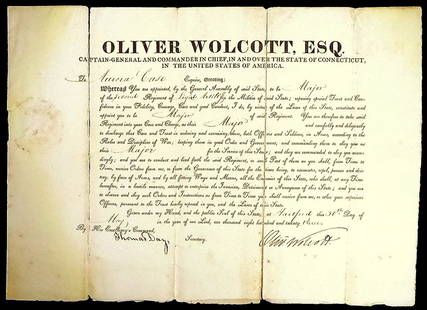 OLIVER WOLCOTT, ESQ.
CAPTAIN-GENERAL AND COMMANDER IN CHIEF, IN AND OVER THE STATE OF CONNECTICUT,
IN THE UNITED STATES OF AMERICA.
To Case Esquire, Greeting:
Whereas You are appointed, by the General Assembly of said State, to be Major
of the second Regiment of light Artillery in the Militia of said State; reposing special Trust and Con-
fidence in your Fidelity, Courage and good Conduct, I do, by virtue of the Laws of this State, constitute and
appoint you to be Major of said Regiment. You are therefore to take said
Regiment into your Care and Charge, as their Major and carefully and diligently
to discharge that Care and Trust in ordering and exercising them, both Officers and Soldiers, in Arms, according to the
Rules and Discipline of War; keeping them in good Order and Government, and commanding them to obey you as
their Major for the Service of this State; and they are commanded to obey you accor-
dingly: and you are to conduct and lead forth the said Regiment, or such Part of them as you shall, from Time to
Time, receive Orders from me, or from the Governor of this State for the time being, to encounter, repel, pursue and des-
troy, by force of Arms, and by all fitting Ways and Means, all the Enemies of this State, who shall, at any Time
hereafter, in a hostile manner, attempt or enterprise the Invasion, Detriment or Annoyance of this State; and you are
to observe and obey such Orders and Instructions as from Time to Time you shall receive from me, or other your superiour
Officers, pursuant to the Trust hereby reposed in you, and the Laws of this State.
Given under my Hand, and the public Seal of this State, at Hartford the 30th Day of
May in the year of our Lord, one thousand eight hundred and twenty
By His Excellency's Command,
Thomas Day, Secretary.
Oliv Wolcott